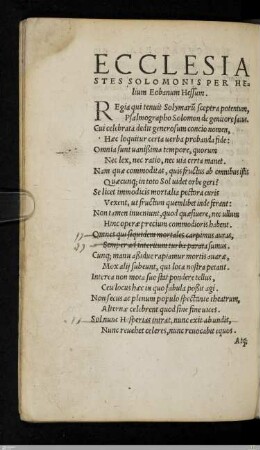 ECCLESIA
STES SOLOMONIS PER HE-
lium Eobanum Hessum.
REgia qui tenuit Solymarū sceptra potentum,
Psalmographo Solomon de genitore satus.
Cui celebrata dedit generosum concio nomen,
Hæc loquitur certa uerba probanda fide:
Omnia sunt uanissima tempore, quorum
Nec lex, nec ratio, nec uia certa manet.
Nam quæ commoditas, quis fructus ab omnibus istis
Quæcunq; in toto Sol uidet orbe geri?
Se licet immodicis mortalia pectora curis
Vexent, ut fructum quemlibet inde ferant:
Non tamen inueniunt, quod quæsiuere, nec ullum
Hinc operæ precium commodioris habent.
Omnes quisquidem mortales carpimur auræ,
Semper ad interitum turba parata sumus.
Cunq; manu assidue rapiamur mortis auaræ,
Mox alij subeunt, qui loca nostra petant.
Interea non mota suo stat pondere tellus,
Ceu locus hæc in quo fabula possit agi.
Non secus ac plenum populo spectante theatrum,
Alternæ celebrent quod sine fine uices.
Sol nunc Hesperias intrat, nunc exit ab undis,
Nunc reuehit celeres, nunc reuocabit equos.
Atq;